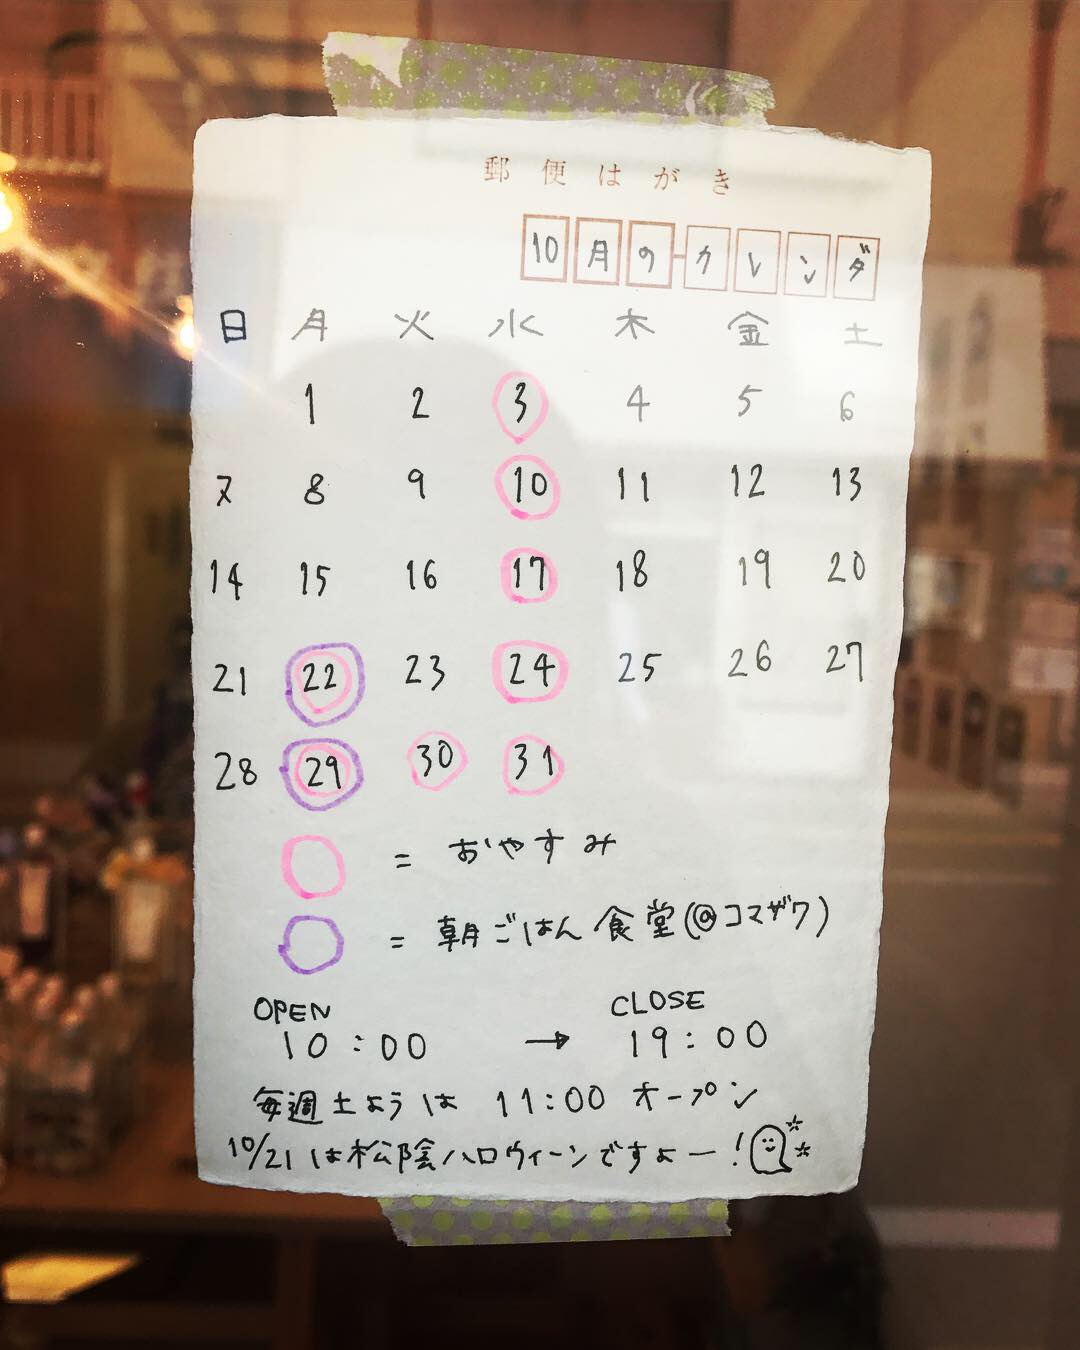 郵便はがき
10月のカレンダ
日 月 火 水 木 金 土
1 2 3 4 5 6
7 8 9 10 11 12 13
14 15 16 17 18 19 20
21 22 23 24 25 26 27
28 29 30 31
= おやすみ
= 朝ごはん食堂(@コマザワ)
OPEN CLOSE
10:00 → 19:00
毎週土ようは 11:00 オープン
10/21は松陰ハロウィーンですよー!